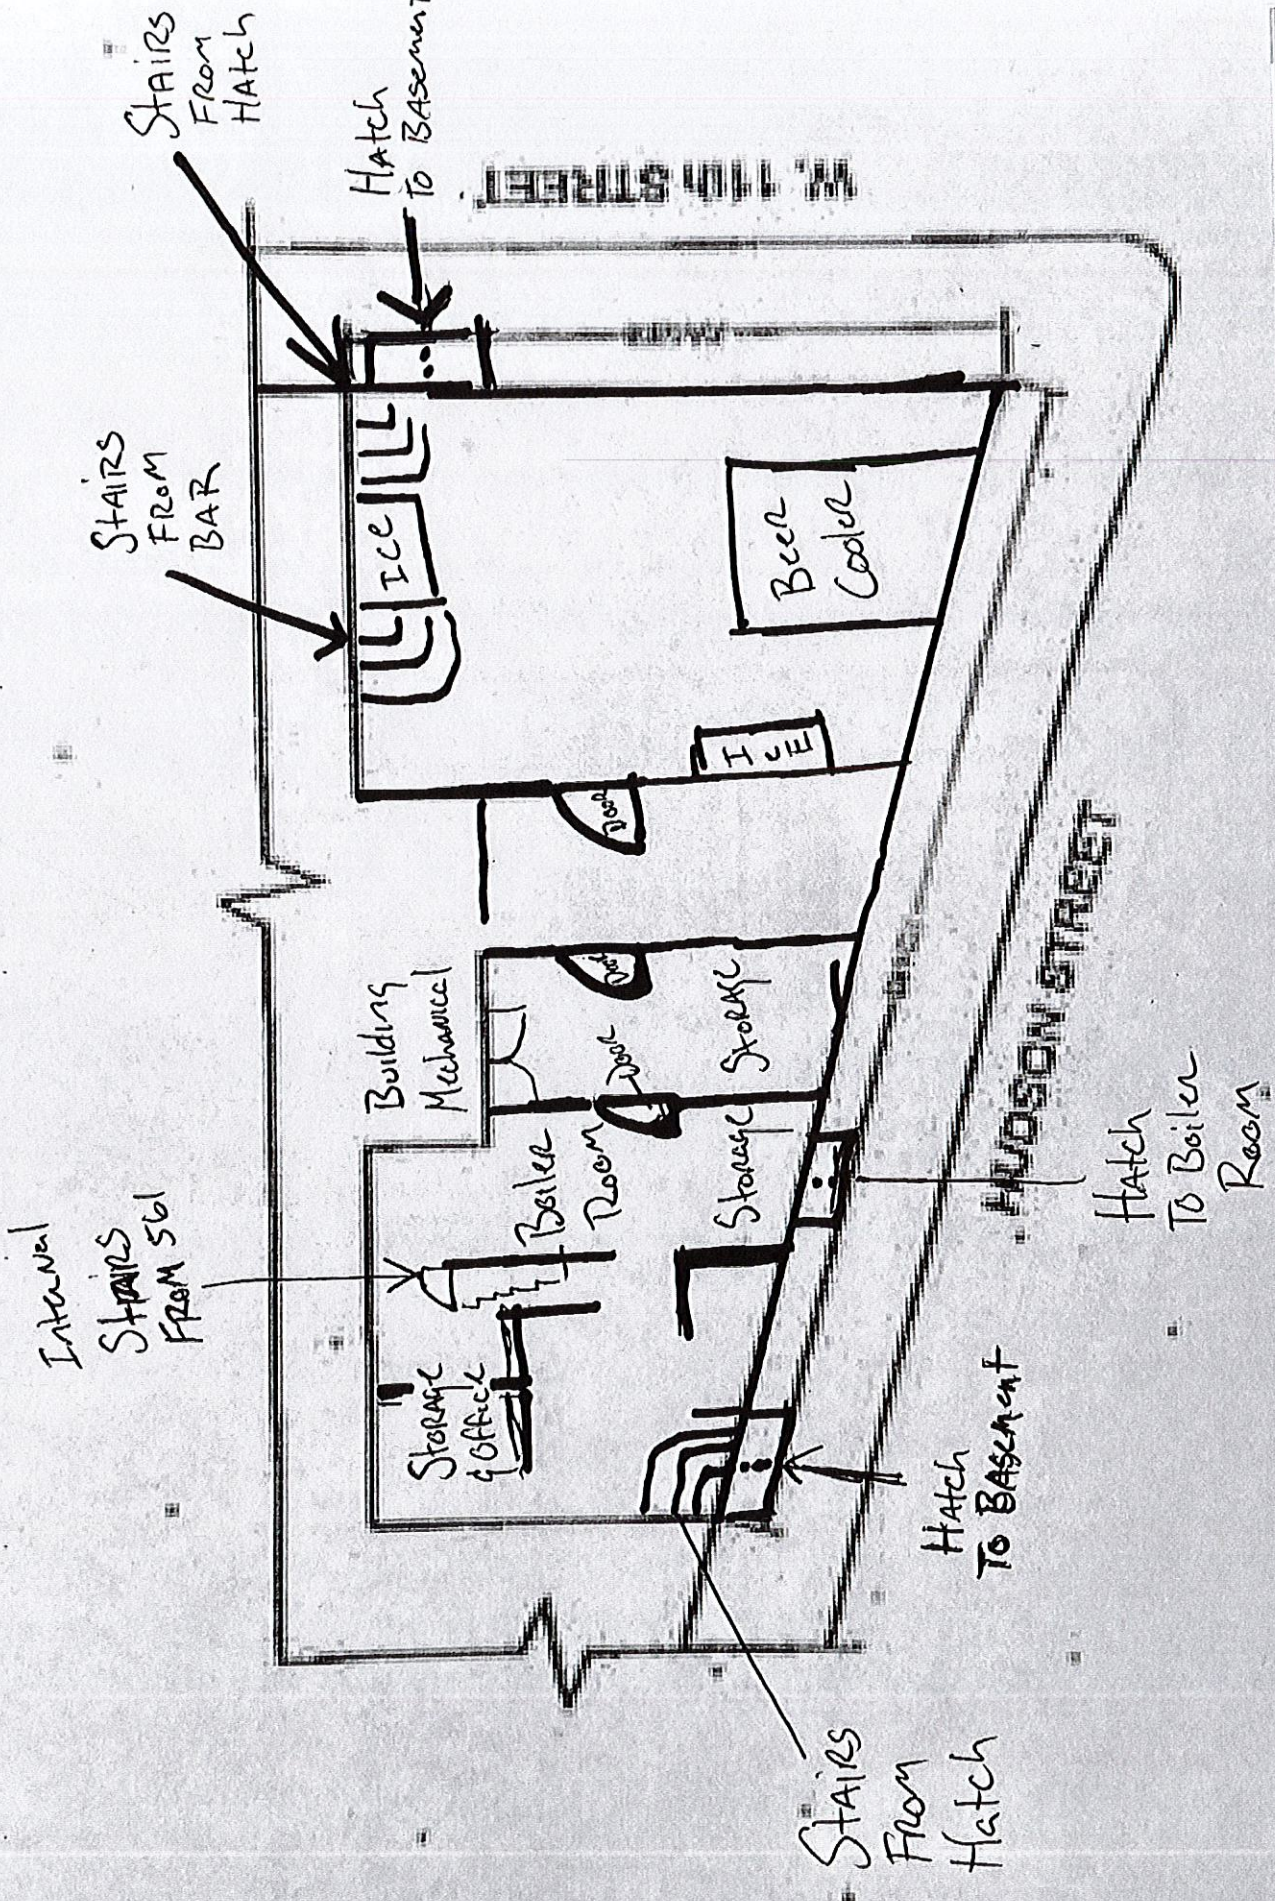 STAIRS
FROM
HATCH
HATCH
TO BASEMENT
W. 11th STREET
STAIRS
FROM
BAR
ICE
Beer
Cooler
ICE
Door
Building
Mechanical
Door
STORAGE
Door
Boiler
Room
Storage
Internal
STAIRS
FROM 561
STORAGE
& Office
HUDSON STREET
HAtch
To Boiler
Room
HAtch
To BASEMent
STAIRS
FROM
Hatch